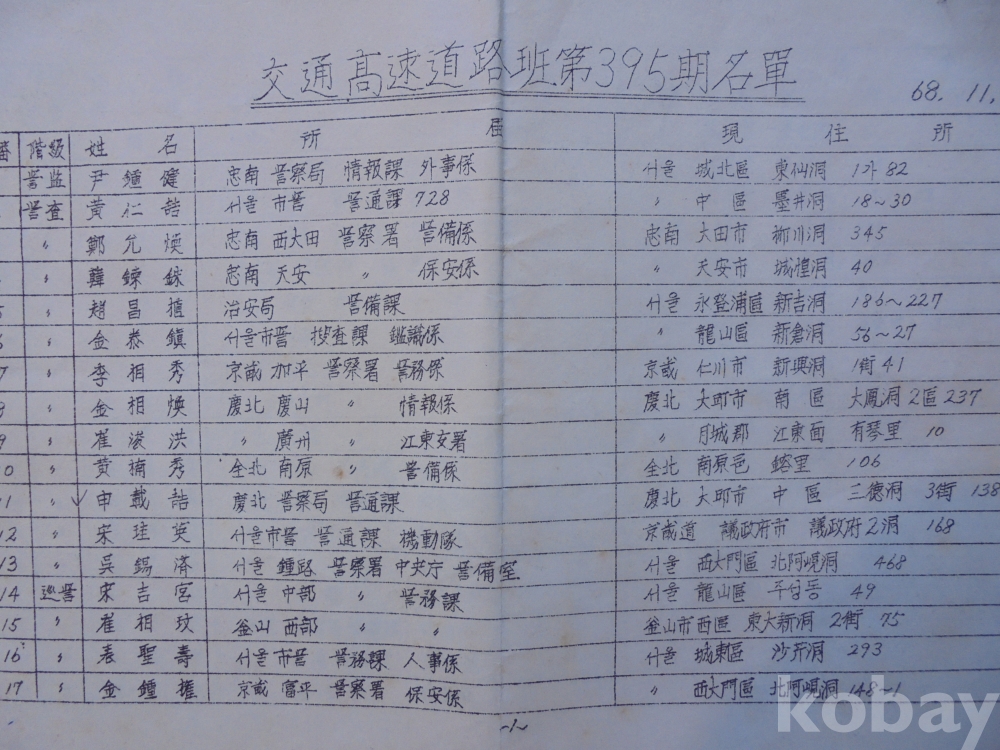 交通高速道路班第395期名單
68. 11.
番 階級 姓 名 所 屆 現 住 所
警監 尹鍾健 忠南 警察局 情報課 外事係 서울 城北區 東仙洞 1가 82
警査 黃仁喆 서울 市警 警通課 728 〃 中區 墨井洞 18~30
〃 鄭允煥 忠南 西大田 警察署 警備係 忠南 大田市 柳川洞 345
〃 韓鍊銶 忠南 天安 〃 保安係 〃 天安市 城隍洞 40
5 〃 趙昌植 治安局 警備課 서울 永登浦區 新吉洞 186~227
6 〃 金崇鎭 서울市警 搜査課 鑑識係 〃 龍山區 新倉洞 56~27
7 〃 李相秀 京畿 加平 警察署 警務係 京畿 仁川市 新興洞 1街 41
〃 金相煥 慶北 慶山 〃 情報係 慶北 大邱市 南區 大鳳洞 2區 237
9 〃 崔浚洪 〃 慶州 〃 江東支署 〃 月城郡 江東面 有琴里 10
0 〃 黃楠秀 全北 南原 〃 警備係 全北 南原邑 106
11 〃 申載喆 慶北 警察局 警通課 慶北 大邱市 中區 三德洞 3街 138
12 〃 宋珪英 서울市警 警通課 機動隊 京畿道 議政府市 議政府2洞 168
13 〃 吳錫済 서울 鍾路 警察署 中央庁 警備室 서울 西大門區 北阿峴洞 468
14 巡警 宋吉宮 서울 中部 〃 警務課 서울 龍山區 주성동 49
15 〃 崔相玟 釜山 西部 〃 〃 釜山市西區 東大新洞 2街 75
16 〃 表聖壽 서울市警 警務課 人事係 서울 城東區 沙斤洞 293
17 〃 金鍾權 京畿 富平 警察署 保安係 〃 西大門區 北阿峴洞 148~1
~1~
kobay